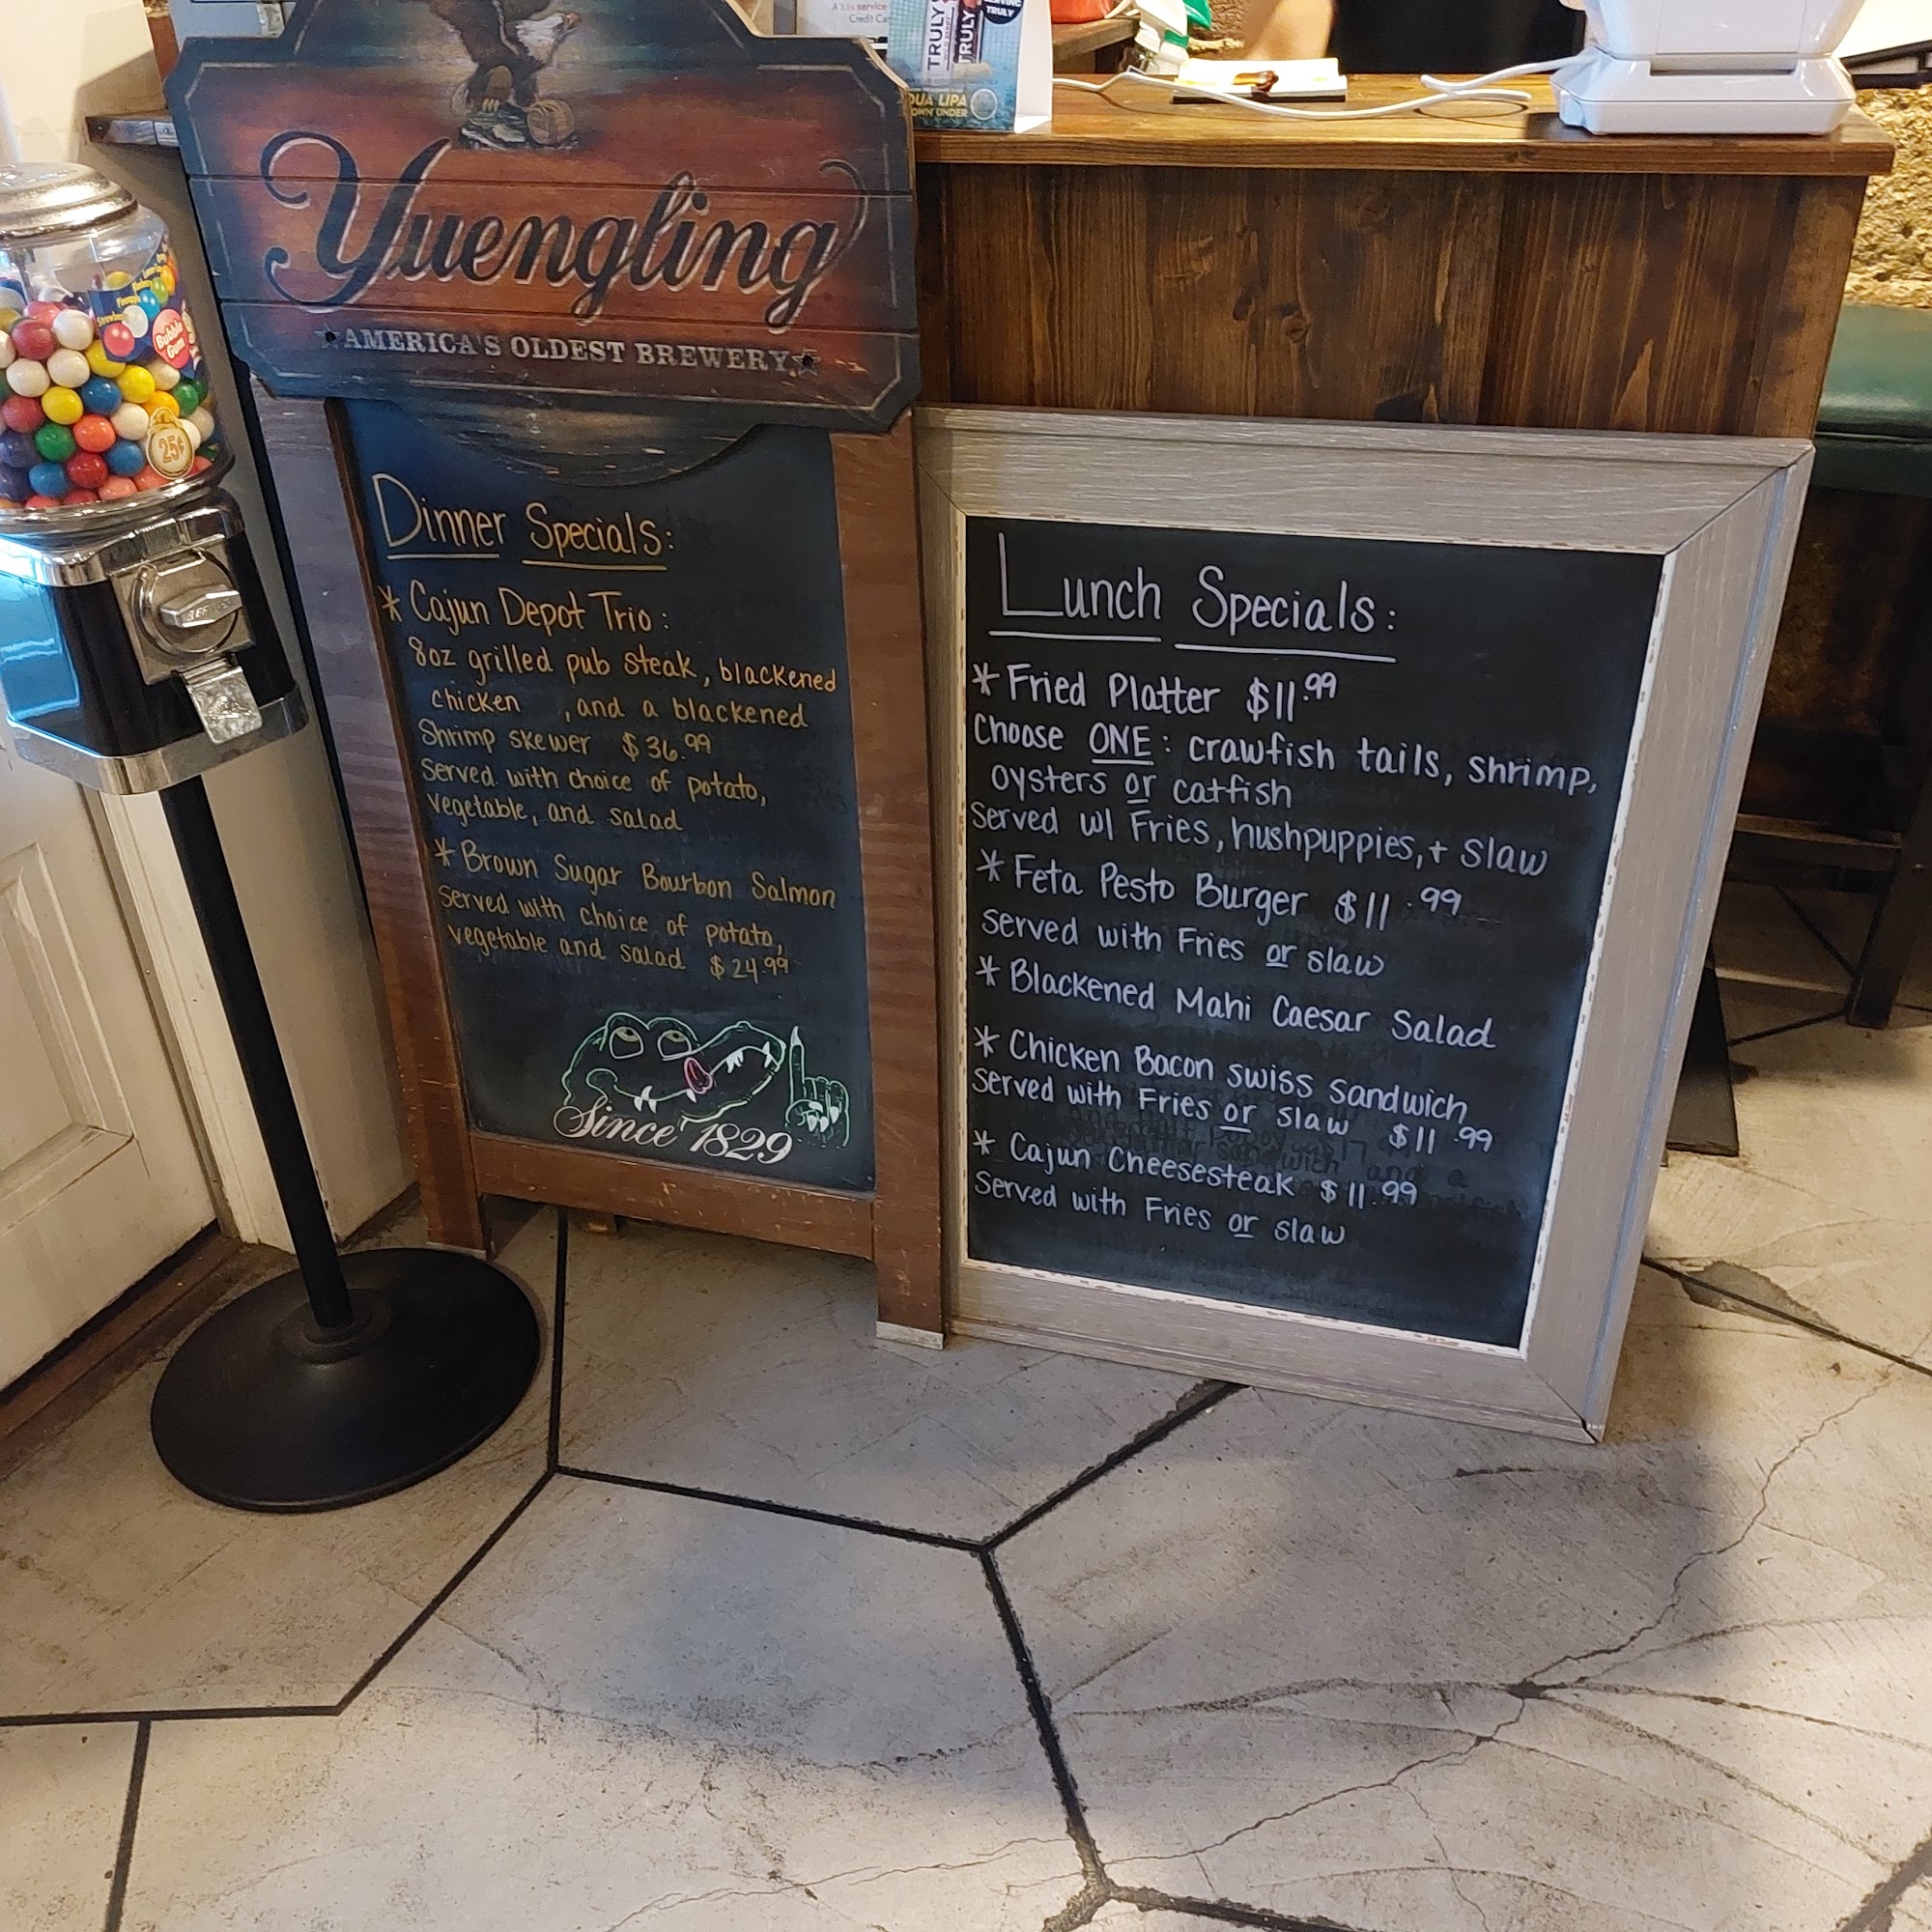 A
service
Credit Ca
TRULY
TRULY
SERVING
TRULY
DUA LIPA
OWN UNDER
Yuengling
AMERICA'S OLDEST BREWERY
Bubble
Gum
25¢
Dinner Specials:
* Cajun Depot Trio:
8oz grilled pub steak, blackened
chicken , and a blackened
Shrimp skewer $36.99
Served with choice of potato,
vegetable, and salad
* Brown Sugar Bourbon Salmon
served with choice of potato,
vegetable and salad $24.99
Since 1829
Lunch Specials:
* Fried Platter $11.99
Choose ONE: crawfish tails, shrimp,
oysters or catfish
Served w/ Fries, hushpuppies, + slaw
* Feta Pesto Burger $11.99
served with Fries or slaw
* Blackened Mahi Caesar Salad
* Chicken Bacon swiss sandwich
served with Fries or slaw $11.99
* Cajun Cheesesteak $11.99
served with Fries or slaw